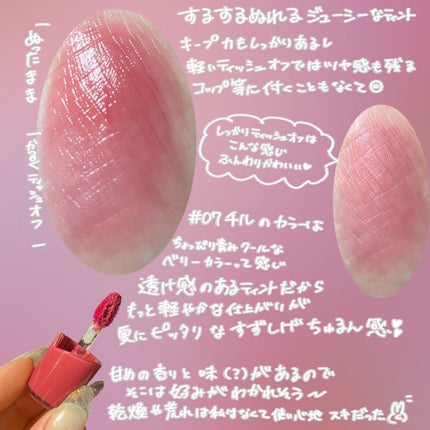 するするぬれるジューシーなティント
キープ力もしっかりあるし
軽いティッシュオフではツヤ感も残る
コップ等に付くこともなくて◎
ーぬったまま
ーかるくティッシュオフー
しっかりティッシュオフは
こんな感じ
ふんわりかわいい♥
#07チルのカラーは
ちょっぴり青みクールな
ベリーカラーって感じ
透け感のあるティントだから
もっと軽やかな仕上がりが
更にピッタリなすずしげちゅるん感❣
甘めの香りと味(?)があるので
そこは好みがわかれそう〜
乾燥や荒れは私はなくて使い心地スキだった